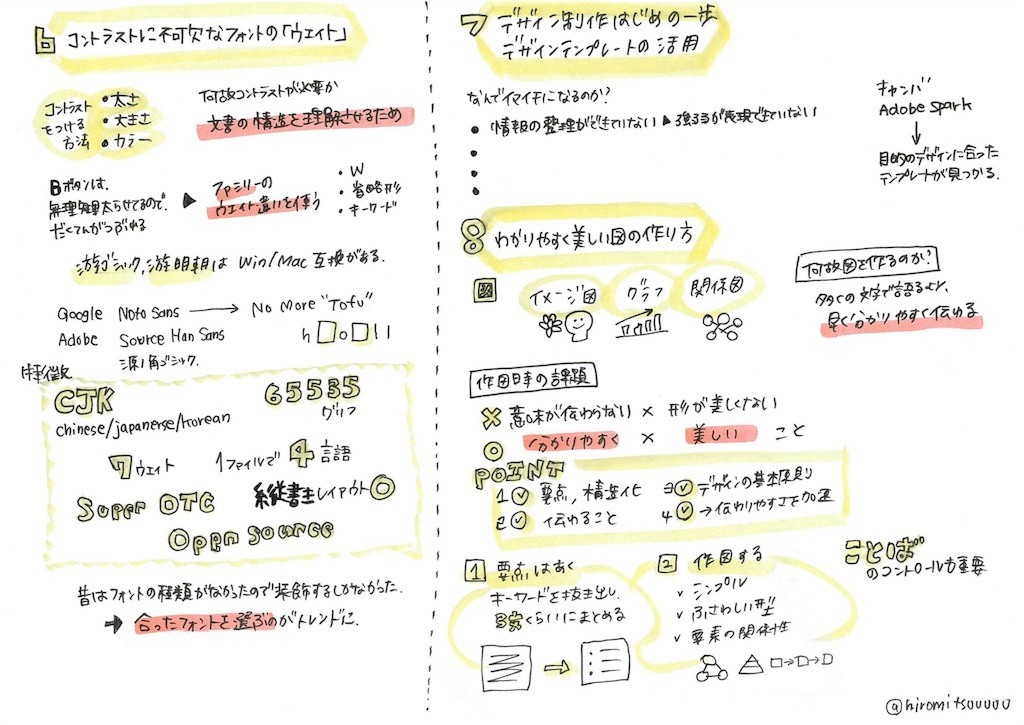 6 コントラストに不可欠なフォントの「ウェイト」
コントラスト
をつける
方法
・太さ
・大きさ
・カラー
何故コントラストが必要か
文書の構造を理解させるため
Bボタンは、
無理矢理太らせてるので、
だくてんがつぶれる
▶ ファミリーの
ウエイト違いを使う
・W
・省略形
・キーワード
游ゴシック、游明朝は Win/Mac 互換がある.
Google Noto Sans → No More "Tofu"
Adobe Source Han Sans
源ノ角ゴシック.
h□o□ll
特徴
CJK
chinese/japanerse/korean
65535
グリフ
7ウェイト
1ファイルで 4言語
Super OTC
縦書きレイアウト◎
Open source
昔はフォントの種類がなかったので装飾するしかなかった.
→ 合ったフォントを選ぶのがトレンドに.
7 デザイン制作はじめの一歩
デザインテンプレートの活用
なんでイマイチになるのか?
・情報の整理ができていない▶強弱が表現できていない
・
・
・
キャンバ
Adobe spark
↓
目的のデザインに合った
テンプレートが見つかる.
8 わかりやすく美しい図の作り方
図
イメージ図
グラフ
関係図
何故図を作るのか?
多くの文字で語るより、
早く分かりやすく伝わる
作図時の課題
× 意味が伝わらない × 形が美しくない
○ 分かりやすく × 美しい こと
POINT
1 要点、構造化
2 伝わること
3 デザインの基本原則
4 →伝わりやすさを加速
1 要点はあく
キーワードを抜き出し、
3つくらいにまとめる
2 作図する
✓ シンプル
✓ ふさわしい型
✓ 要素の関係性
ことば
のコントロールも重要
@hiromitsuuuuu